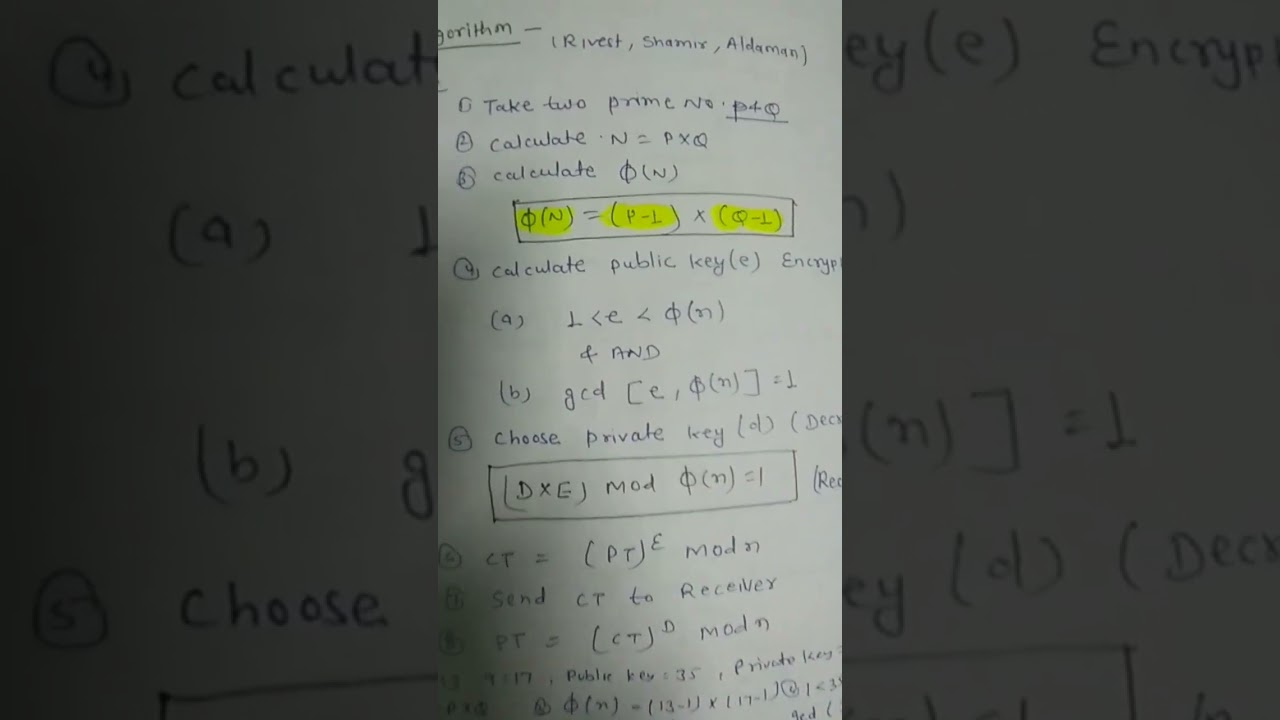 gorithm - (Rivest, Shamir, Aldaman)
① Take two prime No. P & Q
② calculate N = P×Q
③ calculate ϕ(N)
ϕ(N) = (P-1) × (Q-1)
④ calculate public key(e) Encryp
(a) 1 < e < ϕ(n)
& AND
(b) gcd [e, ϕ(n)] = 1
⑤ choose private key (d) (Decr
(D×E) mod ϕ(n) = 1 (Rec
⑥ CT = (PT)^E mod n
⑦ Send CT to Receiver
⑧ PT = (CT)^D mod n
13 q = 17, Public key = 35, Private key =
P×Q ③ ϕ(n) = (13-1) × (17-1) ④ 1 < 35
gcd (